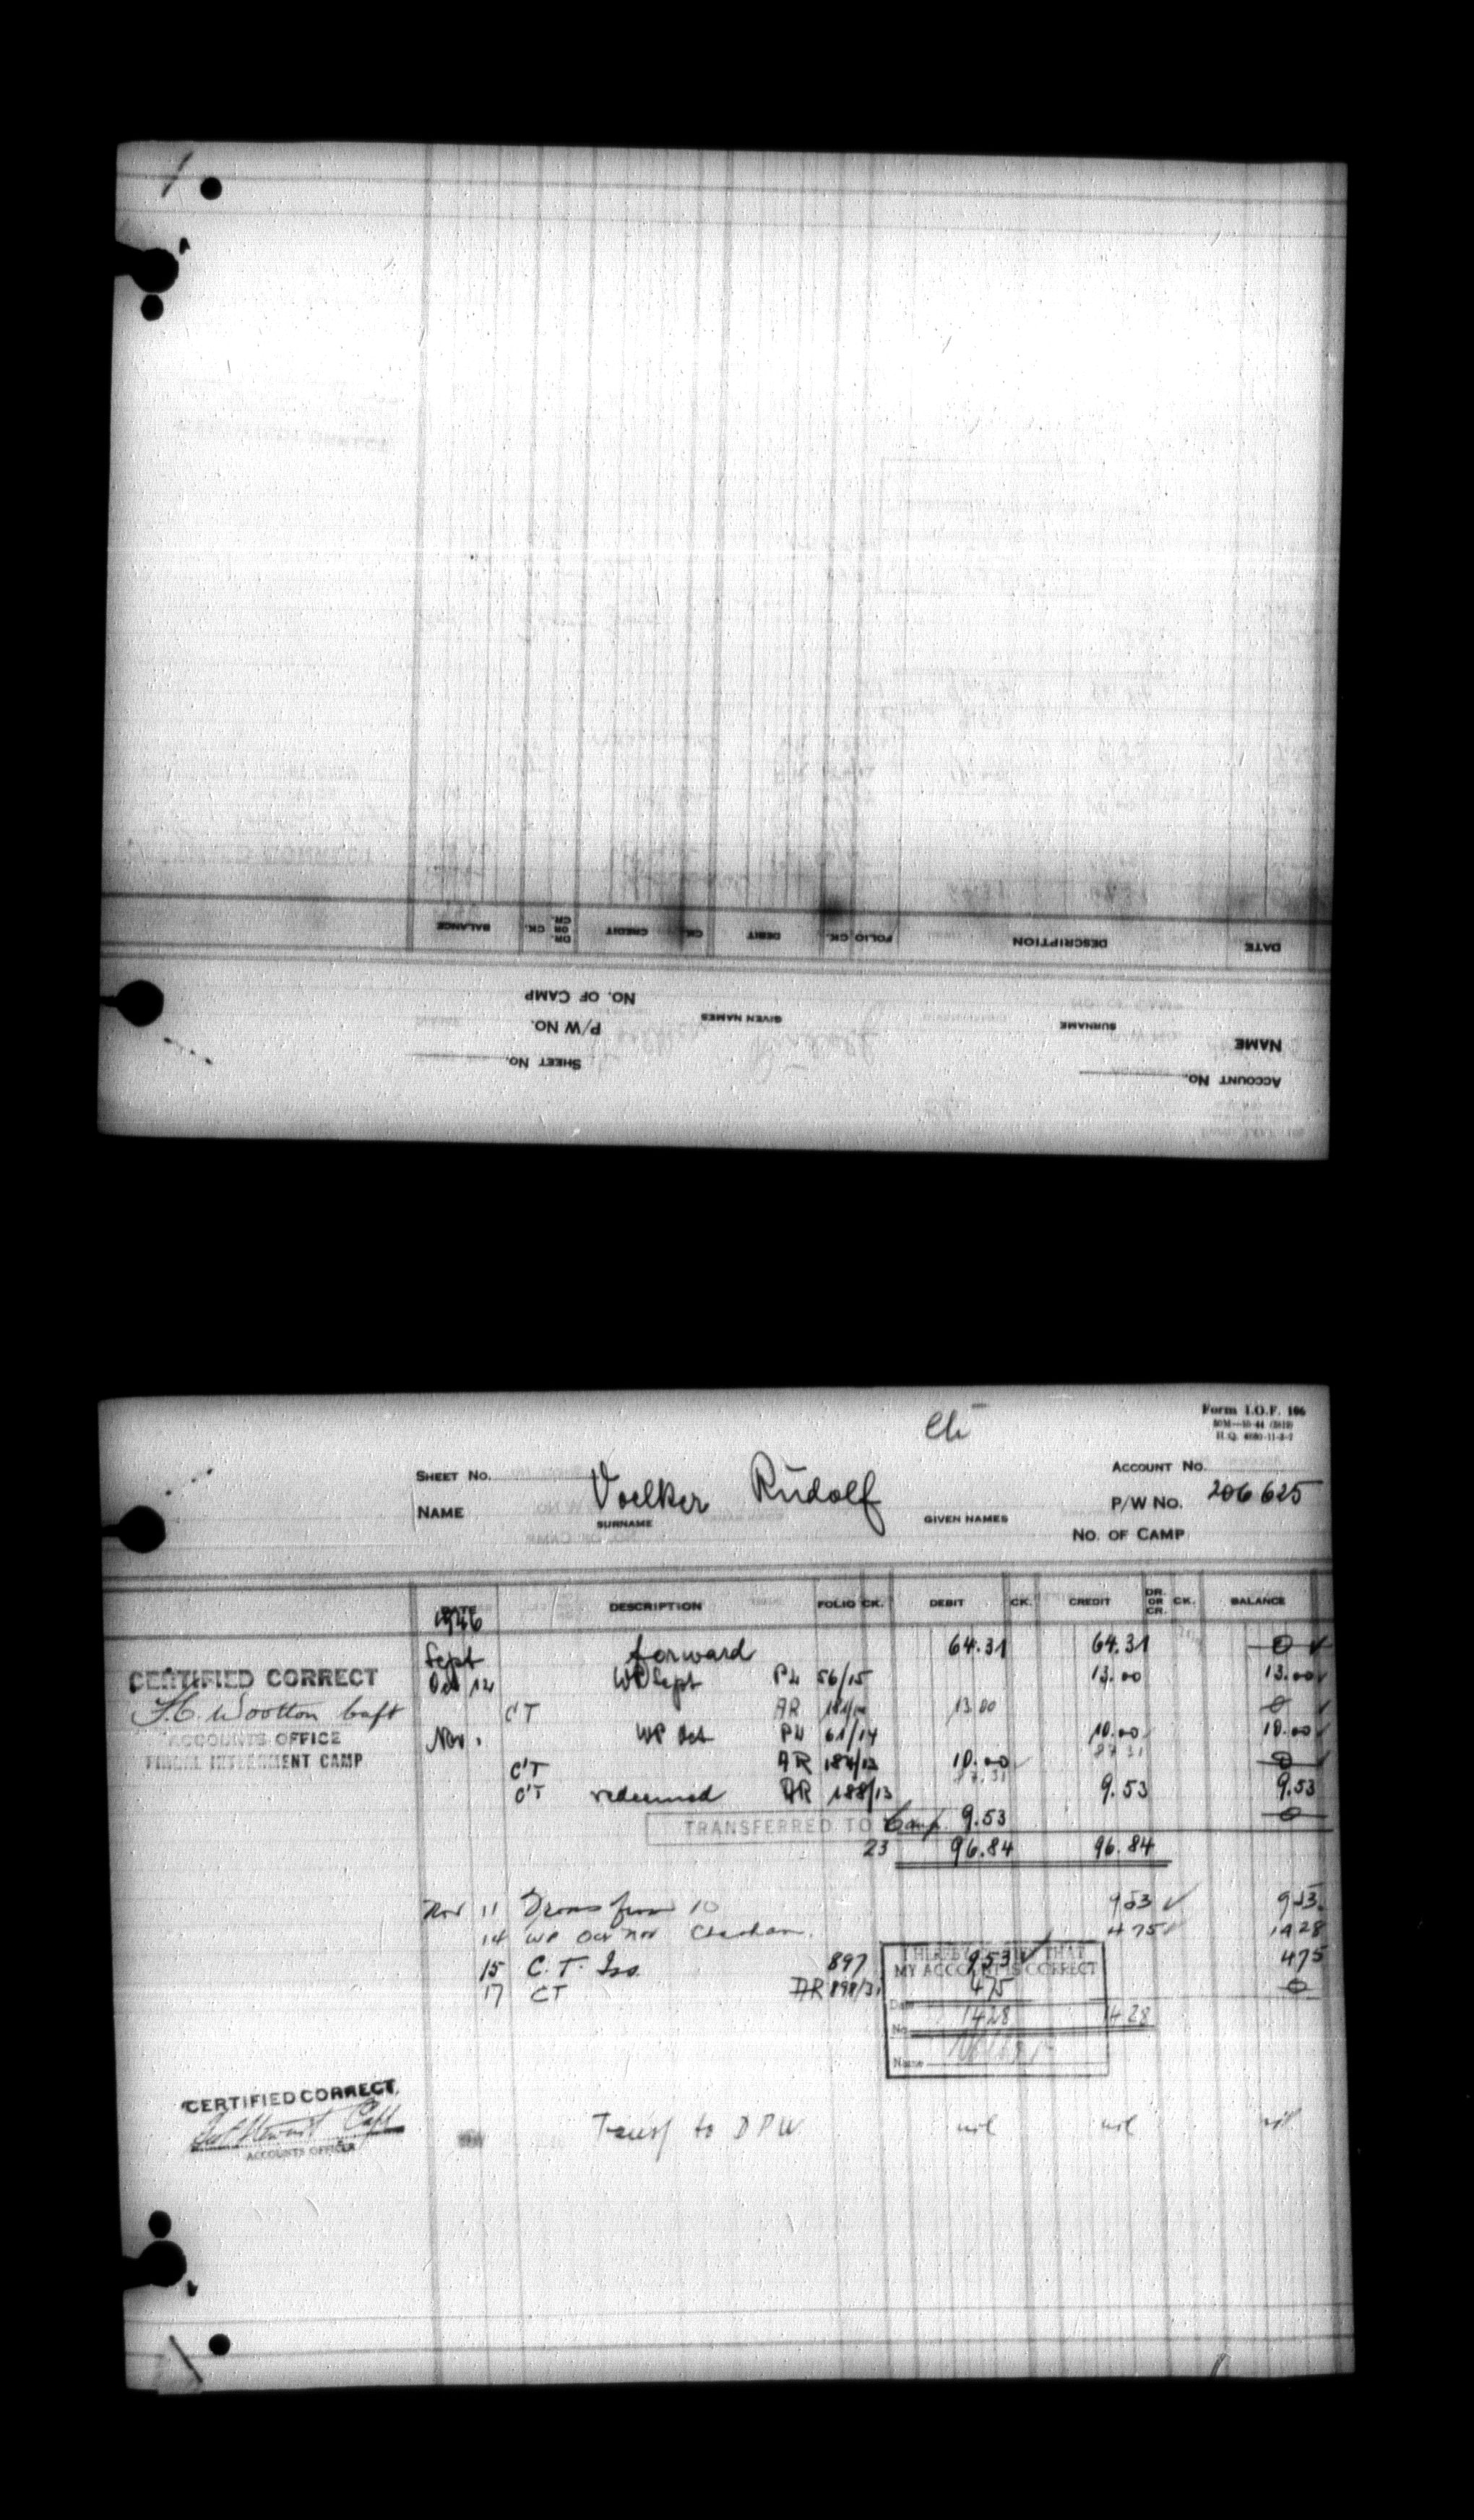 DATE
DESCRIPTION
FOLIO CK.
DEBIT
CK.
CREDIT
DR. OR CR.
CK.
BALANCE
ACCOUNT No.
NAME
SURNAME
GIVEN NAMES
SHEET No.
P/W No.
No. OF CAMP
Form I.O.F. 106
SHEET No.
ACCOUNT No.
NAME Voelker Rudolf P/W No. 206625
SURNAME GIVEN NAMES
No. OF CAMP
DATE DESCRIPTION FOLIO CK. DEBIT CK. CREDIT DR. OR CR. CK. BALANCE
1946
Sept forward 64.31 64.31 0 ✓
CERTIFIED CORRECT
Oct 12 WP Sept PL 56/15 13.00 13.00 ✓
Wootton Capt
CT AR 13.00 0 ✓
ACCOUNTS OFFICE
Nov. WP Oct PL 61/14 10.00 10.00 ✓
INTERNMENT CAMP
87.31
CT AR 184/13 10.00 0 ✓
87.31
CT redeemed AR 188/13 9.53 9.53
TRANSFERRED TO Camp 9.53 0
23 96.84 96.84
Nov 11 Trans from 10 953 ✓ 953
14 WP Oct Nov Chatham 475 ✓ 1428
15 C.T. Iss. 897 953 ✓ 475
I HEREBY CERTIFY THAT
MY ACCOUNT IS CORRECT
17 CT AR 898/31 475 0
Date
1428 1428
No.
Name
CERTIFIED CORRECT
Stewart Capt
ACCOUNTS OFFICER
Transf to DPW nil nil nil